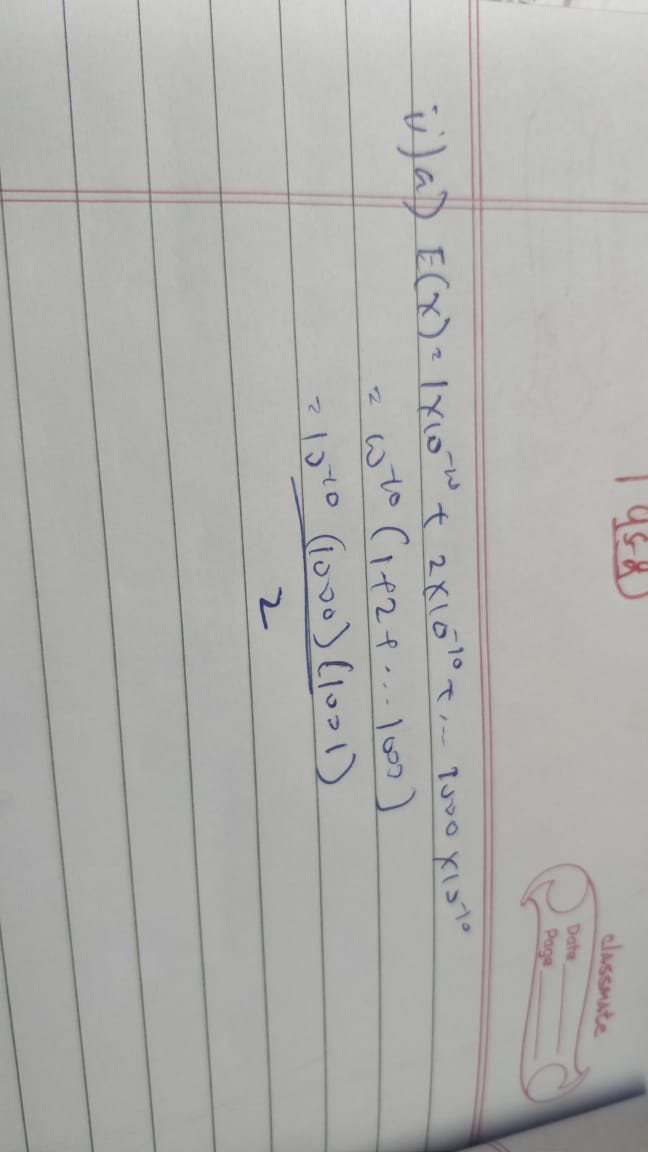 958
classmate
Date
Page
ii) a) E(x) = 1×10⁻¹⁰ + 2×10⁻¹⁰ + ... 1000 ×10⁻¹⁰
= 10⁻¹⁰ (1+2+...1000)
= 10⁻¹⁰ (1000)(1001)
2